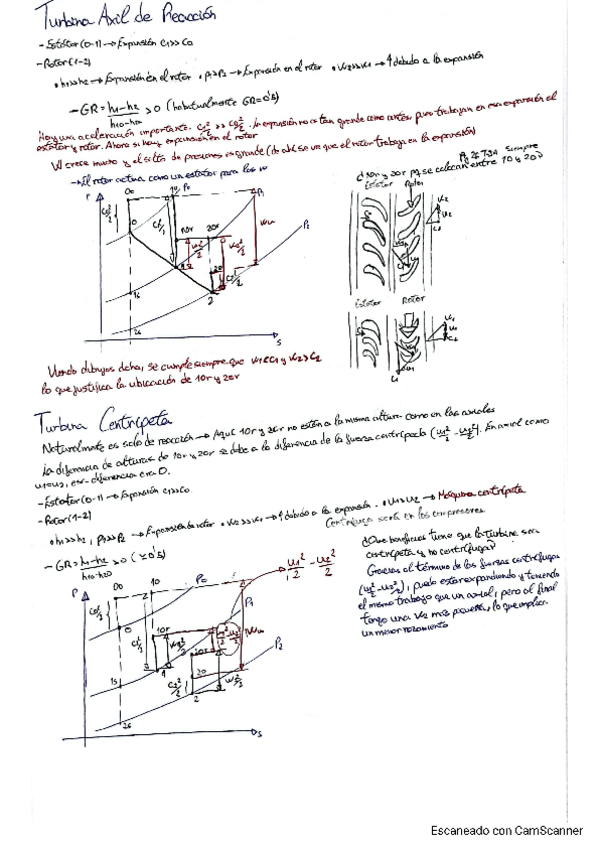 Turbina Axil de Reacción
- Estátor (0-1) → Expansión c1>>c0
- Rotor (1-2)
• h1>>h2 → Expansión en el rotor • p1>p2 → Expansión en el rotor • w2>>w1 → debido a la expansión
- GR = h1-h2 / h10-h20 > 0 (habitualmente GR=0'5)
Hay una aceleración importante. La expansión no es tan grande como antes, pero trabajan en esa expansión el
estátor y rotor. Ahora sí hay expansión en el rotor
W crece mucho y el salto de presiones es grande (de ahí se ve que el rotor trabaja en la expansión)
→ El rotor actúa como un estátor para los w
siempre
¿10r y 20r pq se colocan entre 10 y 20?
Estátor Rotor
Estátor Rotor
00 10 P0 P1 P2
10r 20r
0 1 2 1s 2s
s
Viendo dibujos dcha, se cumple siempre que w1<c1 y w2>c2
lo que justifica la ubicación de 10r y 20r
Turbina Centrípeta
Naturalmente es solo de reacción → Aquí 10r y 20r no están a la misma altura como en las axiales
La diferencia de alturas de 10r y 20r se debe a la diferencia de la fuerza centrípeda (u1²/2 - u2²/2). En axial como
u1=u2, esa diferencia era 0.
- Estátor (0-1) → Expansión c1>>c0
- Rotor (1-2)
• h1>>h2, p1>>p2 → Expansión de rotor • w2>>w1 → debido a la expansión. • u1>u2 → Máquina centrípeta
Centrífuga será en los compresores
- GR = h1-h2 / h10-h20 > 0 (≈0'5)
¿Que beneficios tiene que la turbina sea
centrípeta y no centrífuga?
Gracias al término de las fuerzas centrífugas
(u1²/2 - u2²/2), puedo estar expandiendo y teniendo
el mismo trabajo que un axial, pero al final
tengo una w2 más pequeña, lo que implica
un menor rozamiento
u1²/2 - u2²/2
00 10 P0 P1 P2
10r 20r 20
0 1 2 1s 2s
s
Escaneado con CamScanner